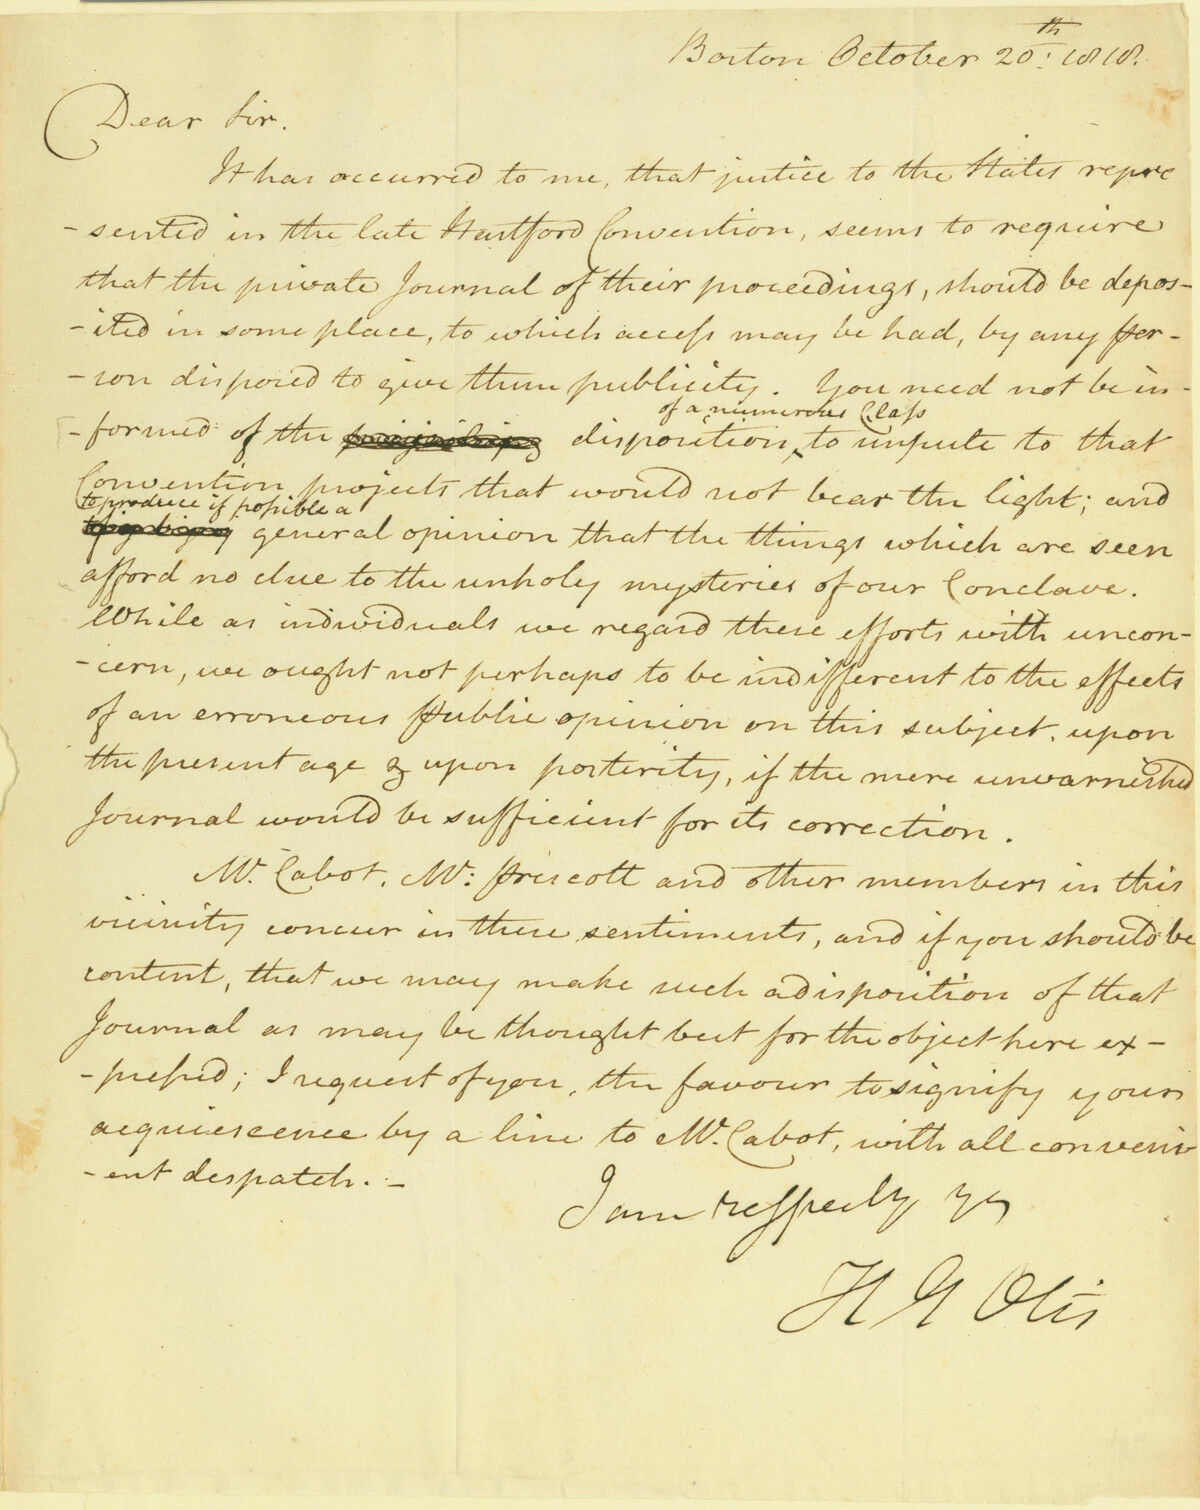 Boston October 20th: 1818.
Dear Sir.
It has occurred to me, that justice to the States repre
-sented in the late Hartford Convention, seems to require
that the private Journal of their proceedings, should be depos-
-ited in some place, to which access may be had, by any per-
-son disposed to give them publicity. You need not be in-
of a numerous Class
-formed of the disposition, to impute to that
Convention projects that would not bear the light; and
to produce if possible a
general opinion that the things which are seen
afford no clue to the unholy mysteries of our Conclave.
While as individuals we regard these efforts with uncon-
-cern, we ought not perhaps to be indifferent to the effects
of an erroneous public opinion on this subject, upon
the present age & upon posterity, if the mere unvarnished
Journal would be sufficient for its correction.
Mr. Cabot, Mr: Prescott and other members in this
vicinity concur in these sentiments, and if you should be
content, that we may make such a disposition of that
Journal as may be thought best for the object here ex-
-pressed; I request of you, the favour to signify your
acquiescence by a line to Mr. Cabot, with all conveni
-ent despatch. -
I am respectly Yrs
H G Otis